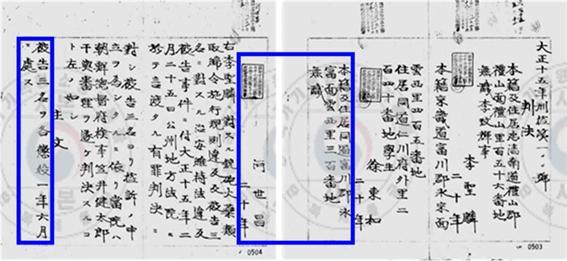 大正十五年刑控第
判決
本籍及住居忠清南道禮山郡
禮山面禮山里百五十六番地
無職
李聖麟
二十年
本籍京畿道富川郡永宗面
雲西里四百五番地
住居同道仁川府外里二
百四十番地
徐東和
二十年
本籍及住居同道富川郡永
宗面雲西里三百番地
無職
0503
河世昌
二十年
右李聖麟ニ對スル銃砲火藥類
取締令施行規則違反及被告三
名ニ對スル治安維持法違反
被告事件ニ付大正十五年二
月二十五日公州地方法院ニ
於テ言渡タル有罪判決ニ
對シ被告三名ヨリ控訴ノ申
立ヲ為シタルニ依リ當院ハ
朝鮮總督府檢事笠井健太郎
干與審理ヲ遂ケ判決スルコ
ト左ノ如シ
主文
被告三名ヲ各懲役一年六月
ニ處ス
0504